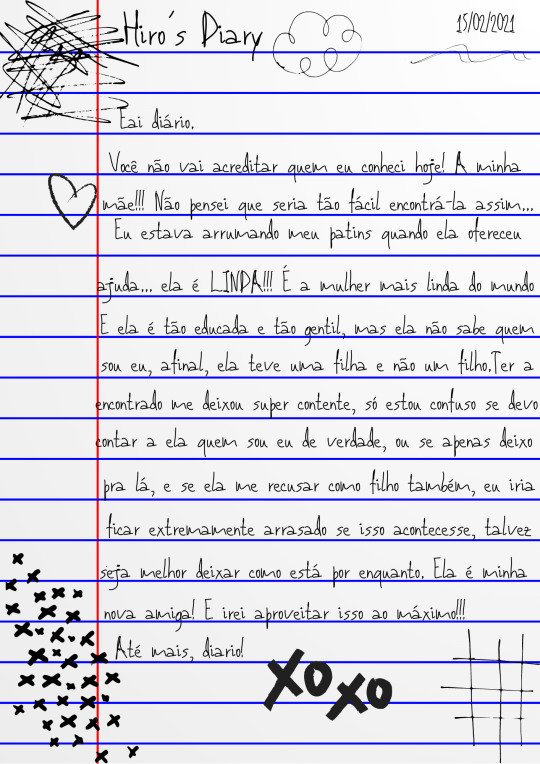 Hiro's Diary
15/02/2021
Eai diário,
Você não vai acreditar quem eu conheci hoje! A minha
mãe!!! Não pensei que seria tão fácil encontrá-la assim...
Eu estava arrumando meu patins quando ela ofereceu
ajuda... ela é LINDA!!! É a mulher mais linda do mundo
E ela é tão educada e tão gentil, mas ela não sabe quem
sou eu, afinal, ela teve uma filha e não um filho.Ter a
encontrado me deixou super contente, só estou confuso se devo
contar a ela quem sou eu de verdade, ou se apenas deixo
pra lá, e se ela me recusar como filho também, eu iria
ficar extremamente arrasado se isso acontecesse, talvez
seja melhor deixar como está por enquanto. Ela é minha
nova amiga! E irei aproveitar isso ao máximo!!!
Até mais, diario!
XOXO